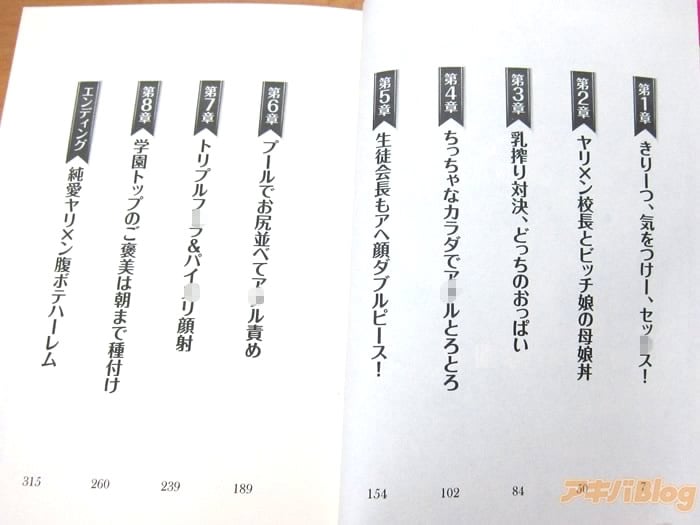 第1章 きりーつ、気をつけー、セッス！ 7
第2章 ヤリメン校長とビッチ娘の母娘丼 50
第3章 乳搾り対決、どっちのおっぱい 84
第4章 ちっちゃなカラダでアルとろとろ 102
第5章 生徒会長もアヘ顔ダブルピース！ 154
第6章 プールでお尻並べてアル責め 189
第7章 トリプルフラ&パイリ顔射 239
第8章 学園トップのご褒美は朝まで種付け 260
エンディング 純愛ヤリメン腹ボテハーレム 315
アキバBlog